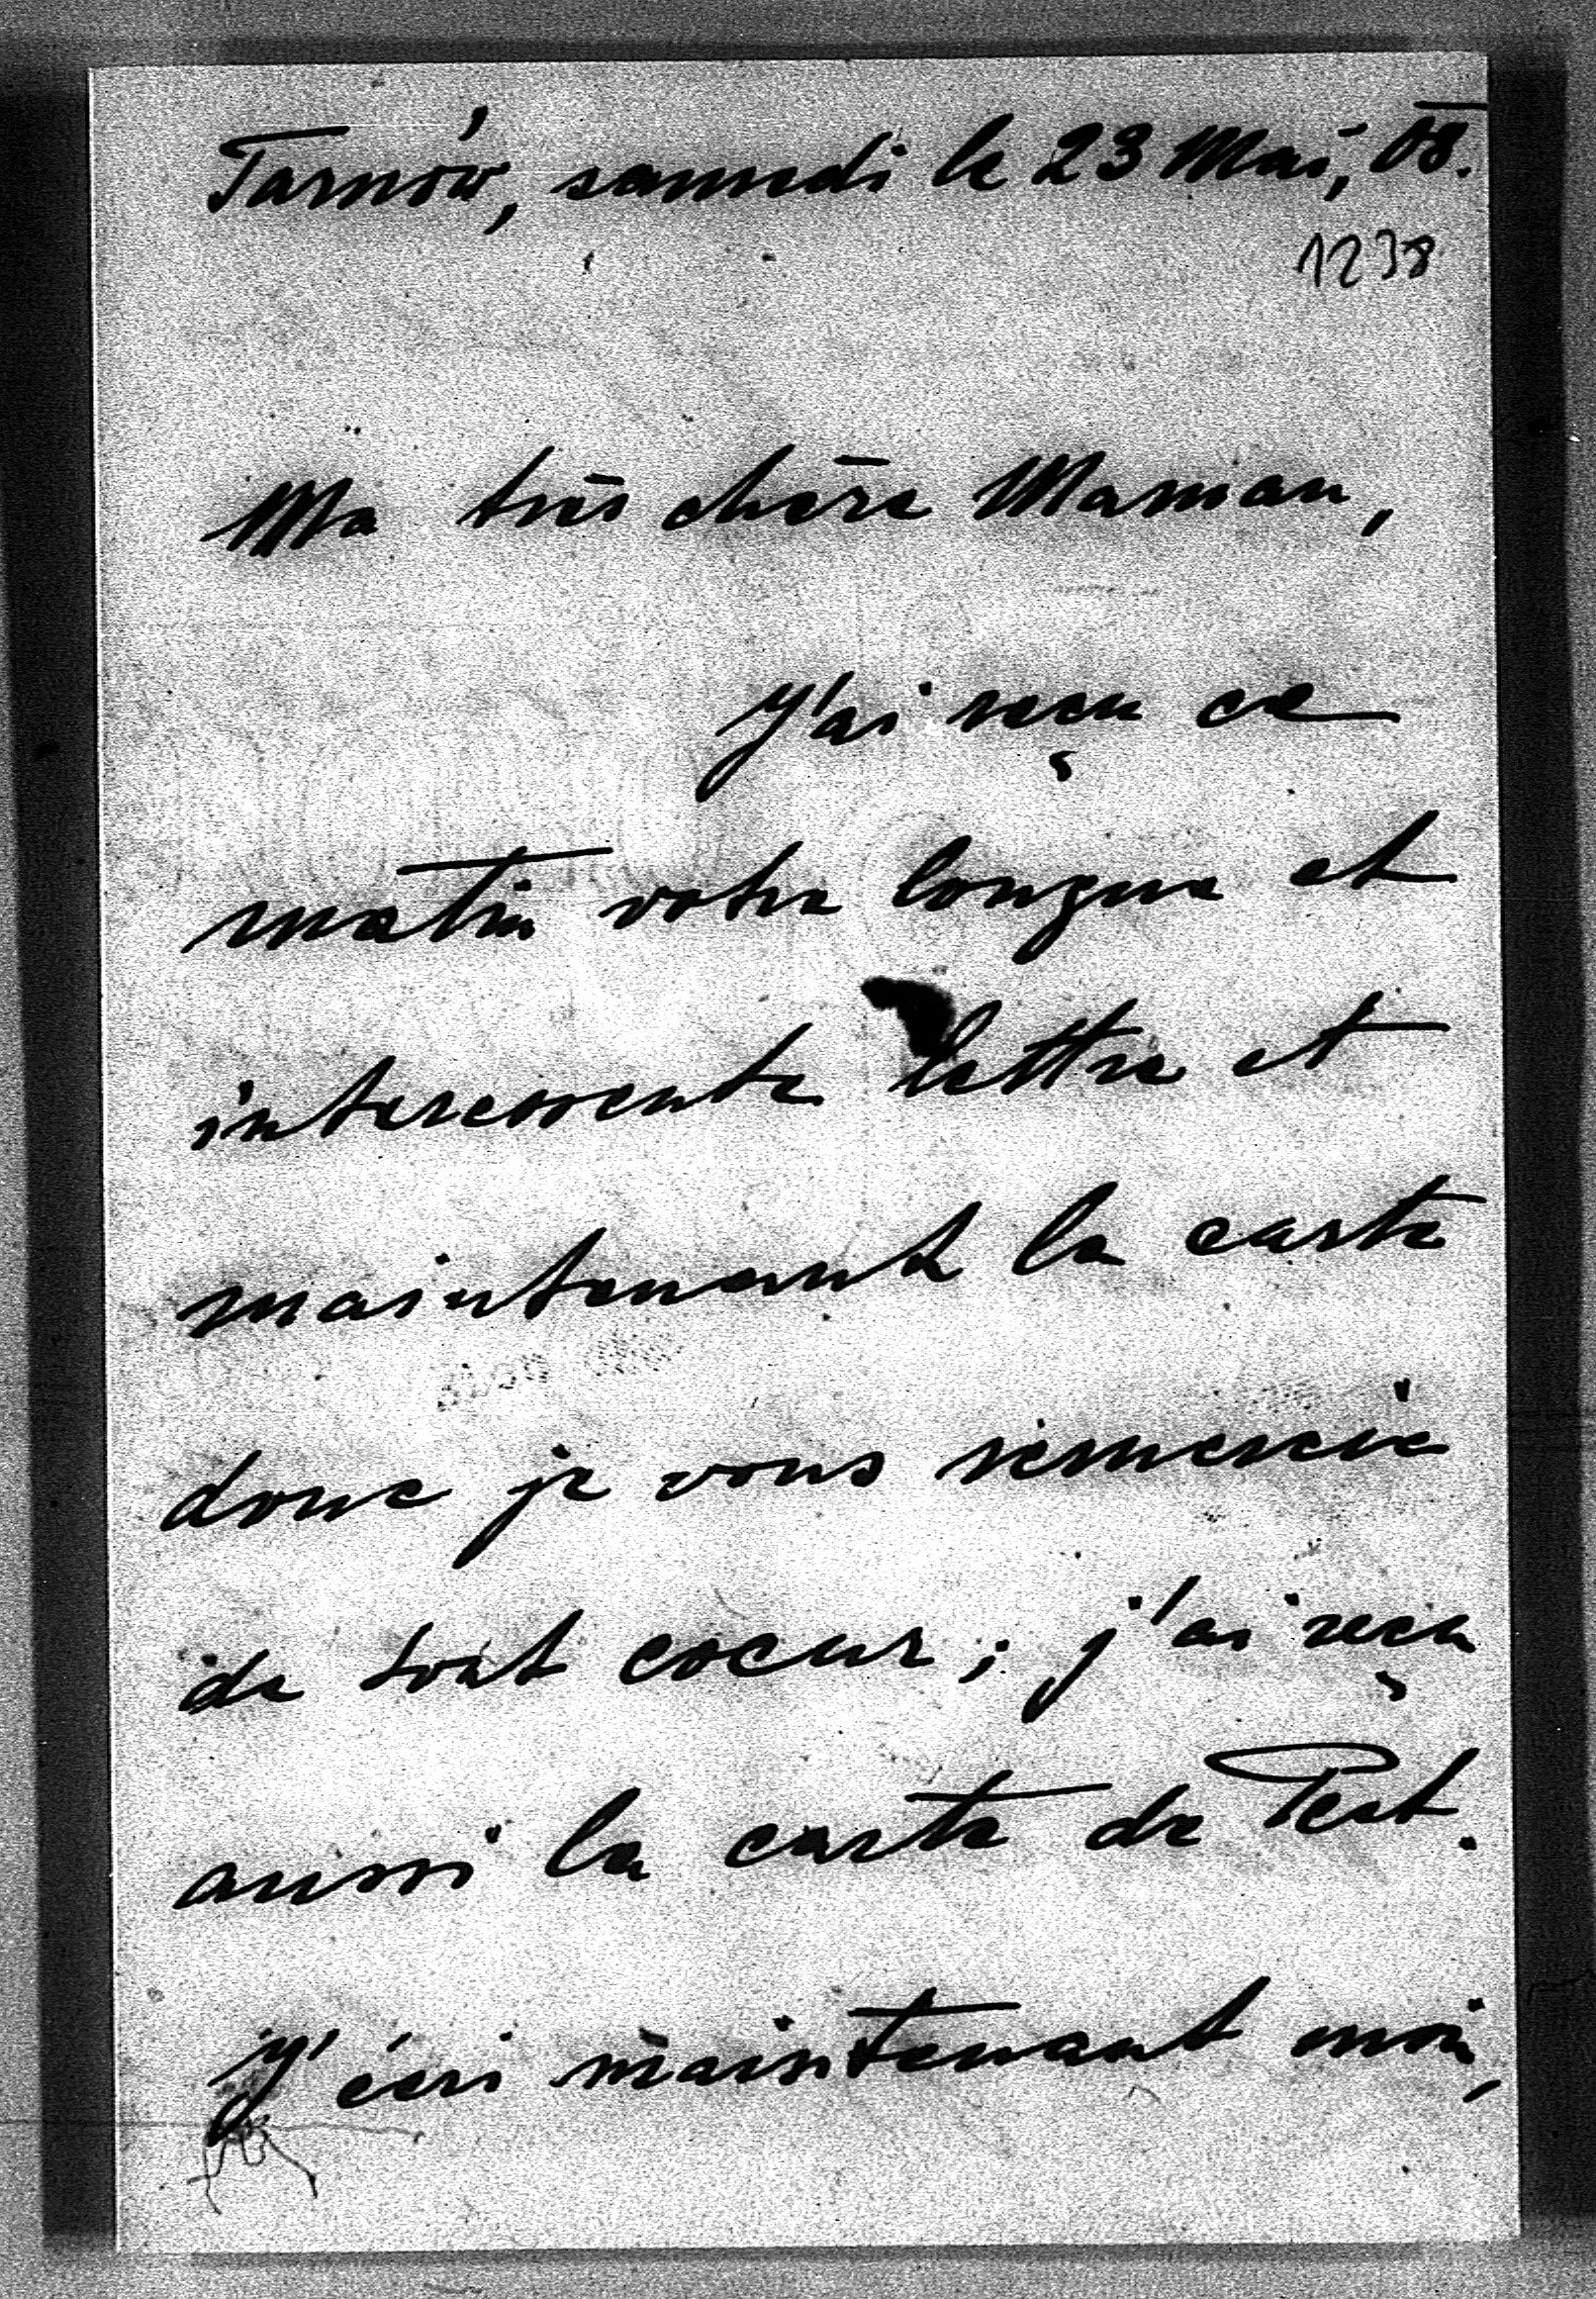 Tarnów, samedi le 23 Mai, 08.
1238
Ma très chère Maman,
J'ai reçu ce
matin votre longue et
interessente lettre et
maintenant la carte
donc je vous remercie
de tout coeur; j'ai reçu
aussi la carte de Pest.
J'écri maintenant moi,